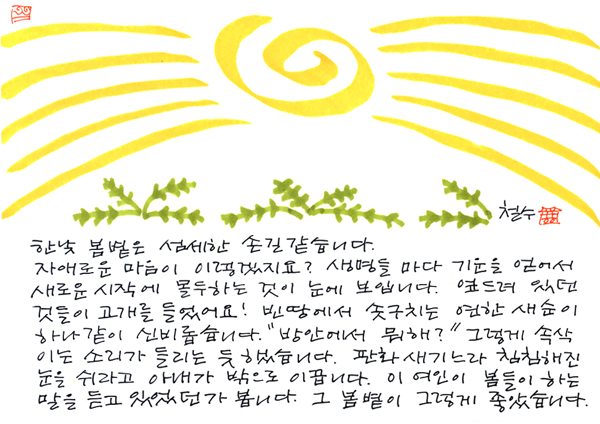 철수
한낮 봄볕은 섬세한 손길같습니다.
자애로운 마음이 이렇겠지요? 생명들 마다 기운을 얻어서
새로운 시작에 몰두하는 것이 눈에 보입니다. 엎드려 있던
것들이 고개를 들었어요! 빈땅에서 솟구치는 여한 새순이
하나같이 신비롭습니다. "방안에서 뭐해?" 그렇게 속삭
이는 소리가 들리는 듯 하였습니다. 판화 새기느라 침침해진
눈을 쉬라고 아내가 밖으로 이끕니다. 이 여인이 봄들이 하는
말을 듣고 있었던가 봅니다. 그 봄볕이 그렇게 좋았습니다.